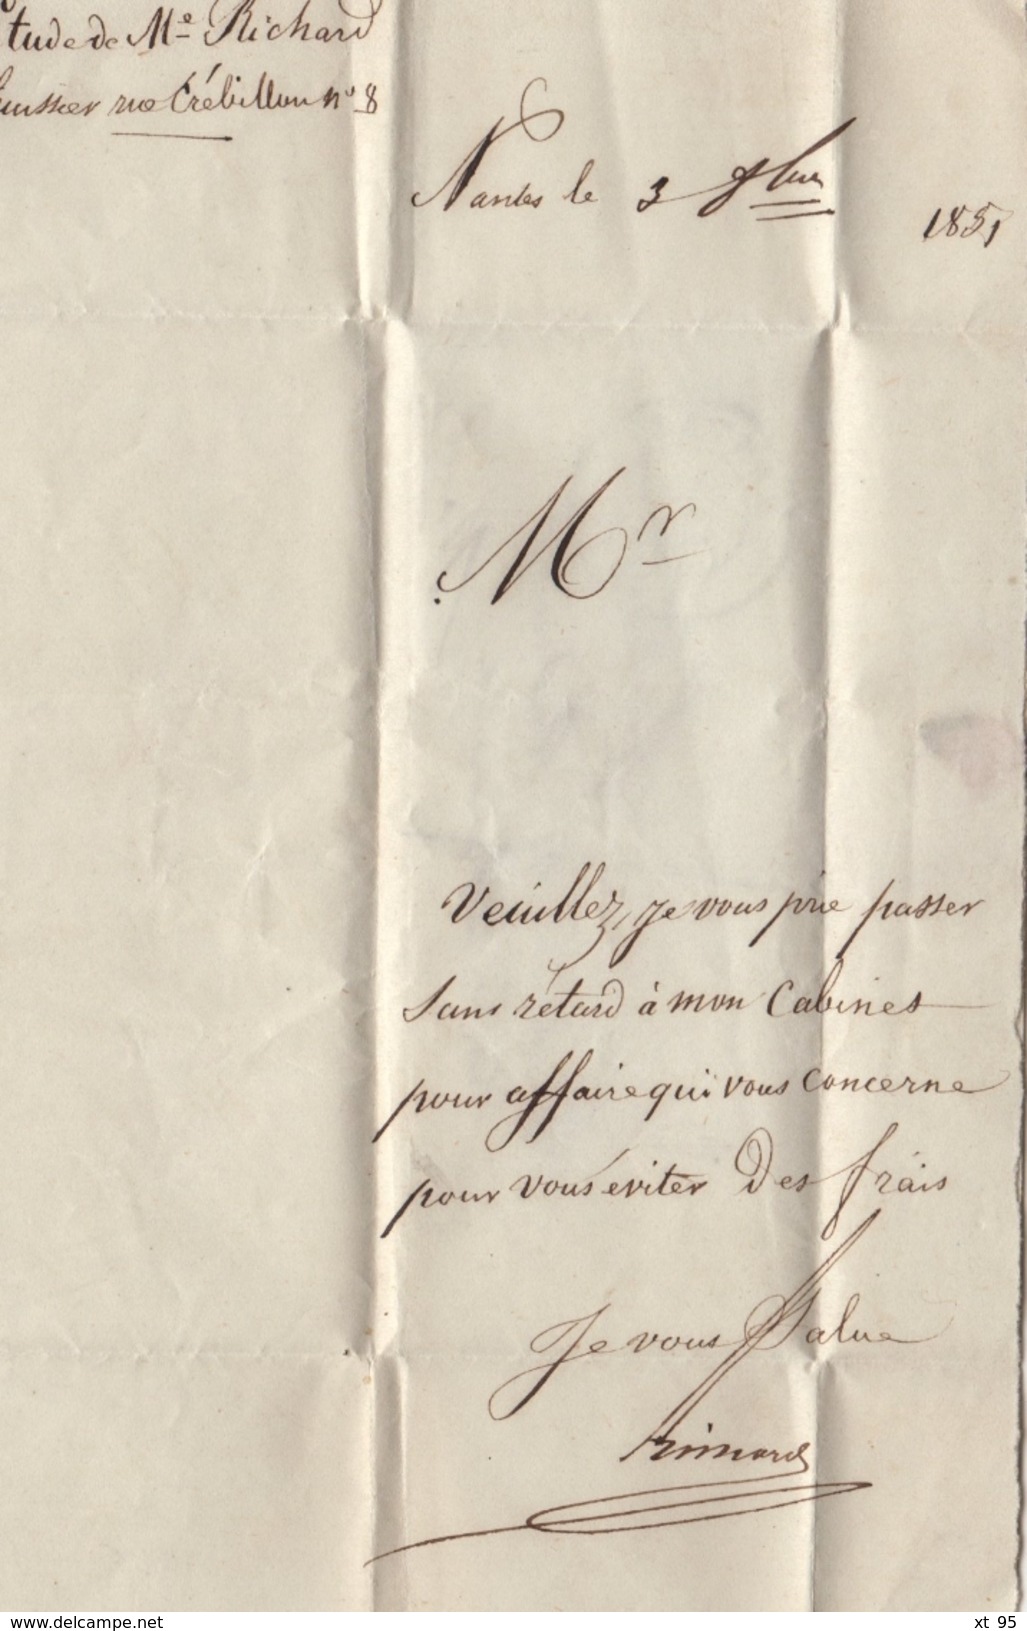 tude de Me Richard
huissier rue Crébillon no 8
Nantes le 3 9bre
1851
Mr
Veuillez, je vous prie passer
sans rétard à mon Cabinet
pour affaire qui vous concerne
pour vous éviter des frais
Je vous salue
www.delcampe.net
xt 95